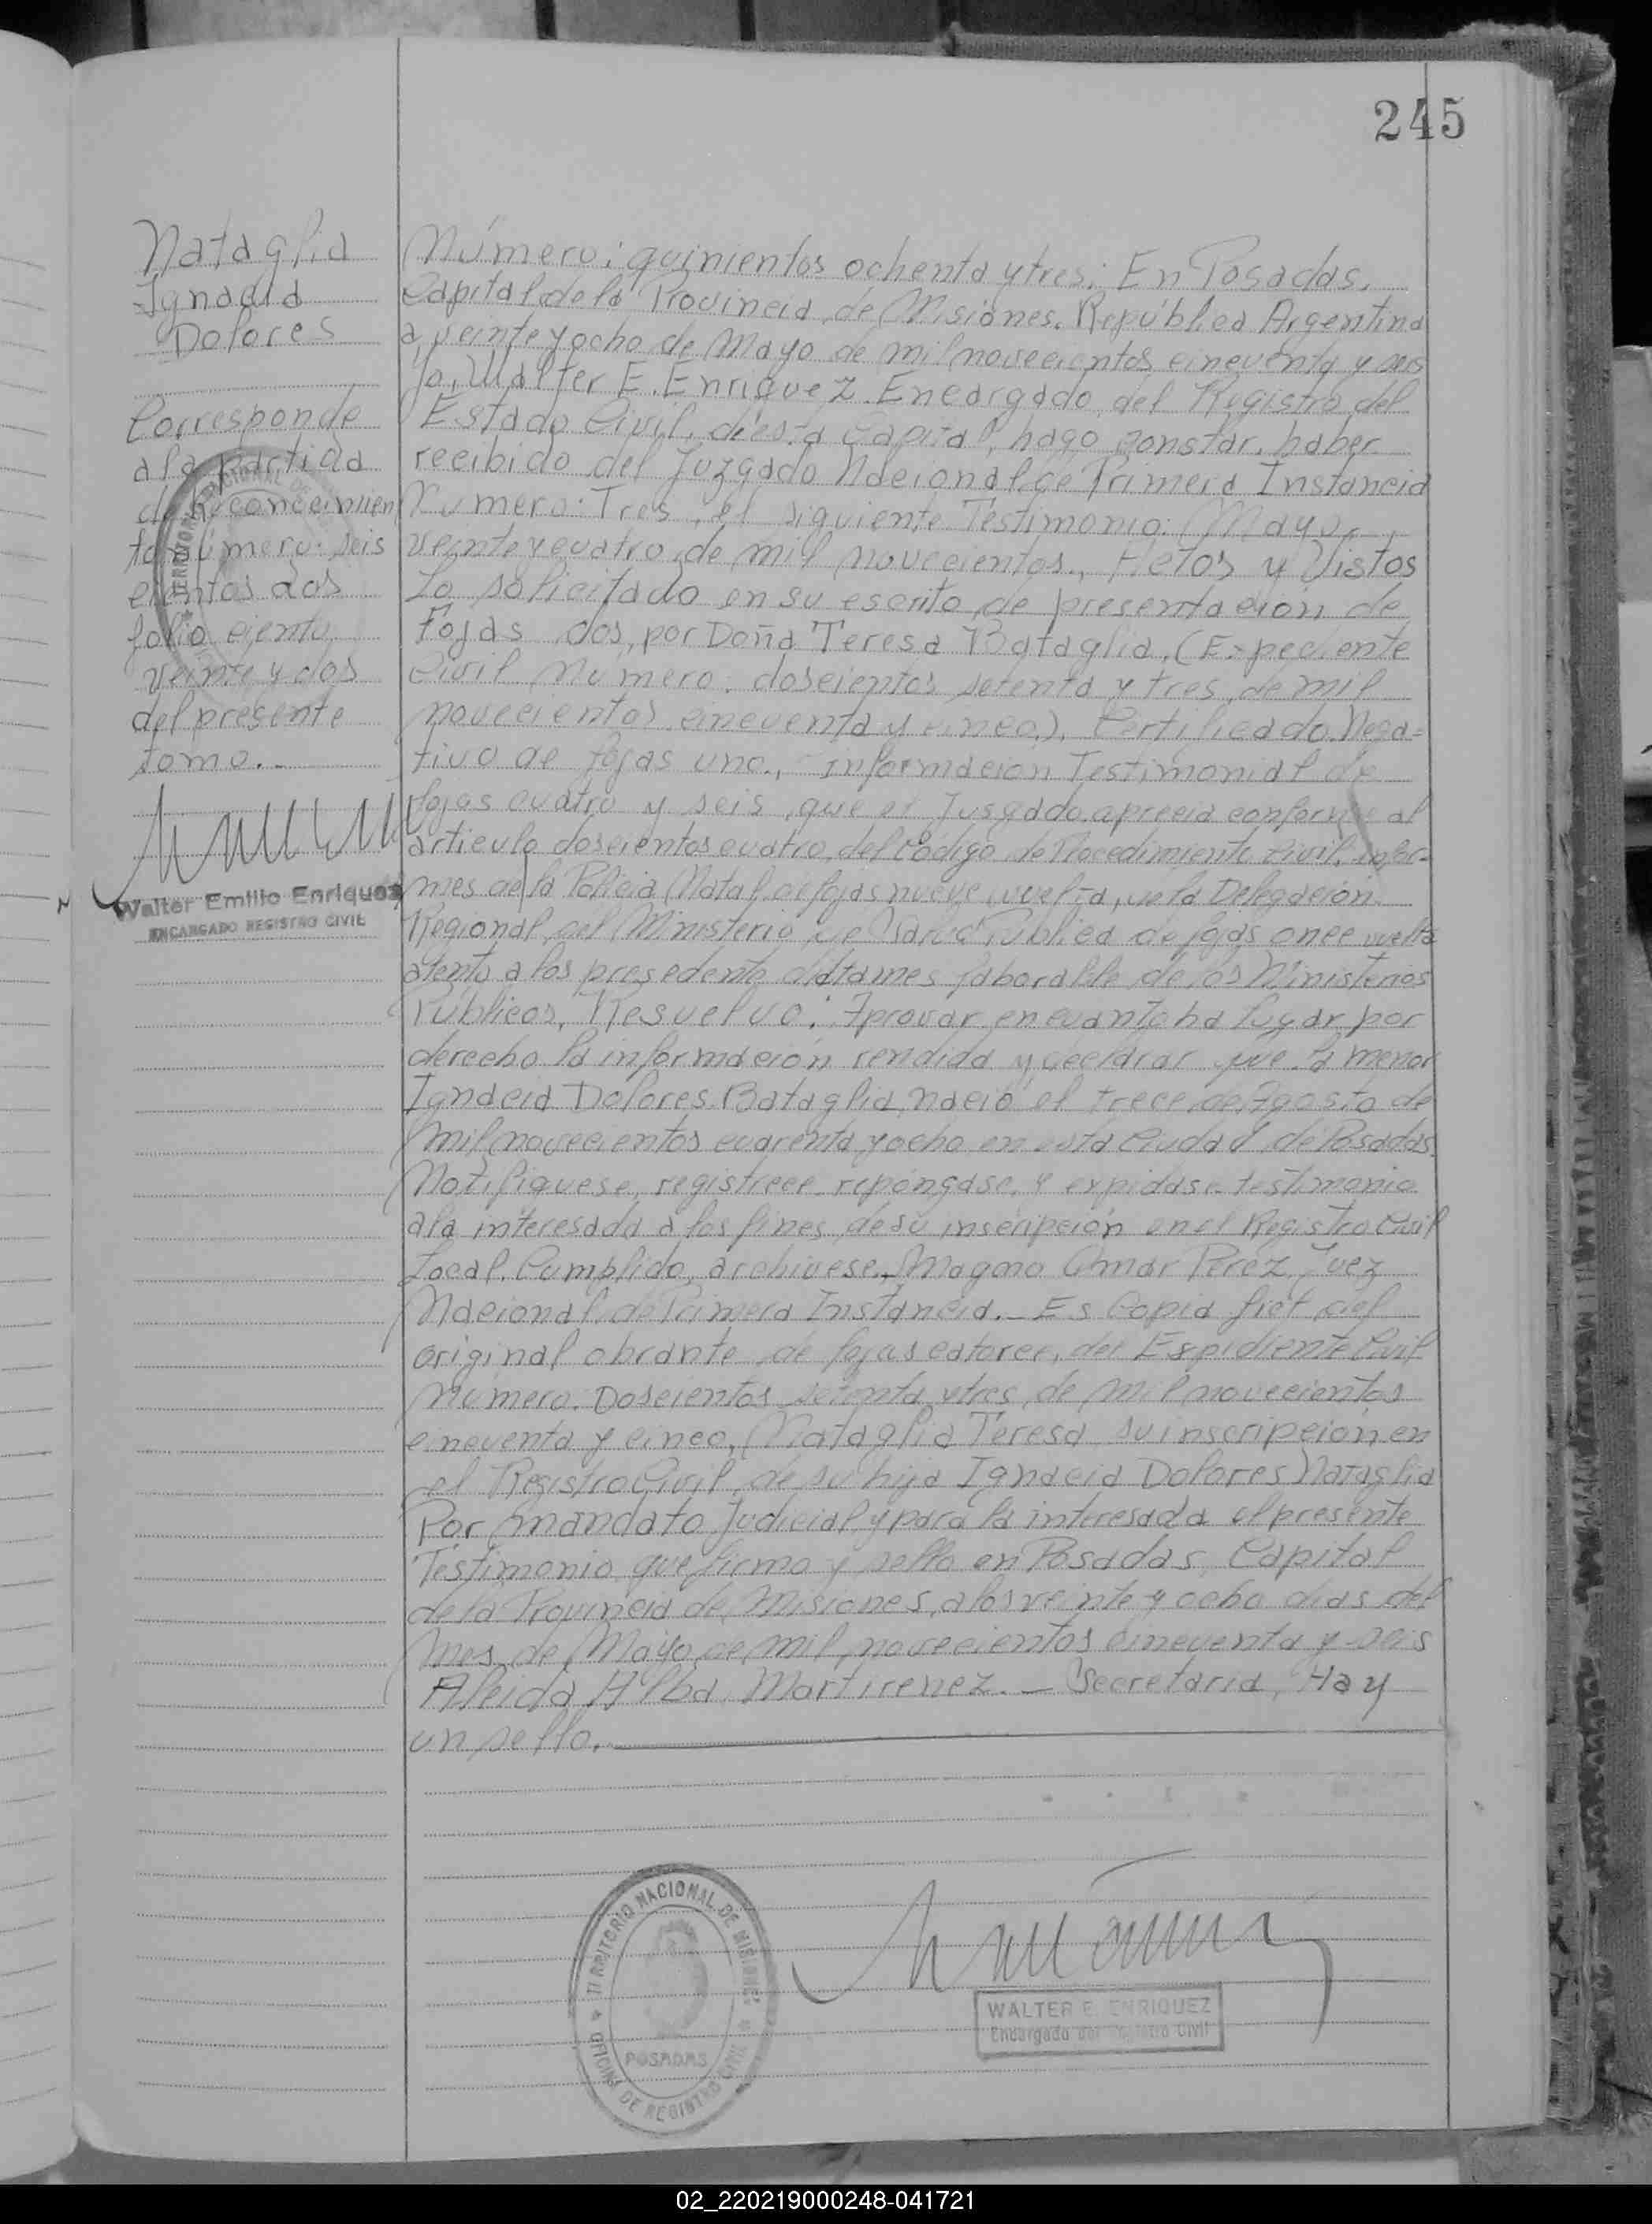 245
Nataglia
Ignacia
Dolores
Corresponde
a la partida
de Reconocimien
to número: seis
cientos dos
folio ciento
veinte y dos
del presente
tomo.-
Walter Emilio Enriquez
ENCARGADO REGISTRO CIVIL
Número: quinientos ochenta y tres: En Posadas,
Capital de la Provincia de Misiónes. República Argentina
a, veinte y ocho de Mayo de mil novecientos cincuenta y seis
Yo, Walter E. Enriquez. Encargado del Registro del
Estado Civil, de esta Capital, hago constar, haber
recibido del Juzgado Nacional de Primera Instancia
Numero: Tres, el siguiente Testimonio: Mayo,
veinte y cuatro, de mil novecientos., Actos y Vistos
Lo solicitado en su escrito de presentación de
Fojas dos, por Doña Teresa Bataglia, (Expediente
Civil Numero: doscientos setenta y tres, de mil
novecientos cincuenta y cinco.), Certificado Nega=
tivo de fojas uno., información Testimonial de
fojas cuatro y seis, que el Jusgado aprecia conforme al
articulo doscientos cuatro, del Código de Procedimiento Civil, infor-
mes de la Policia Natal, de fojas nueve vuelta, de la Delegación
Regional del Ministerio de Salud Publica de fojas once vuelta
atento a los presedente dictames faborable de los Ministerios
Públicos, Resuelvo: Aprovar en cuanto ha lugar por
derecho la información rendida y declarar que la menor
Ignacia Dolores Bataglia, nació el trece de Agosto de
mil novecientos cuarenta y ocho en esta Ciudad de Posadas.
Notifiquese, registrece, repóngase, y expidase testimonio
a la interesada a los fines de su inscripción en el Registro Civil
Local. Cumplido, archivese., Magno Omar Perez, Juez
Nacional de Primera Instancia.- Es Copia fiel del
original obrante de fojas catorce, del Expidiente Civil
Numero: Doscientos setenta y tres, de mil novecientos
cincuenta y cinco, Nataglia Teresa su inscripción en
el Registro Civil, de su hija Ignacia Dolores Nataglia
Por mandato Judicial y para la interesada el presente
Testimonio que firmo y sello en Posadas, Capital
de la Provincia de Misiones, a los veinte y ocho dias del
mes de Mayo de mil novecientos cincuenta y seis
Aleida Alba Martirenez.- Secretaria, Hay
un sello.
TERRITORIO NACIONAL DE MISIONES
OFICINA DE REGISTRO CIVIL
POSADAS
WALTER E. ENRIQUEZ
Encargado del Registro Civil
02_220219000248-041721